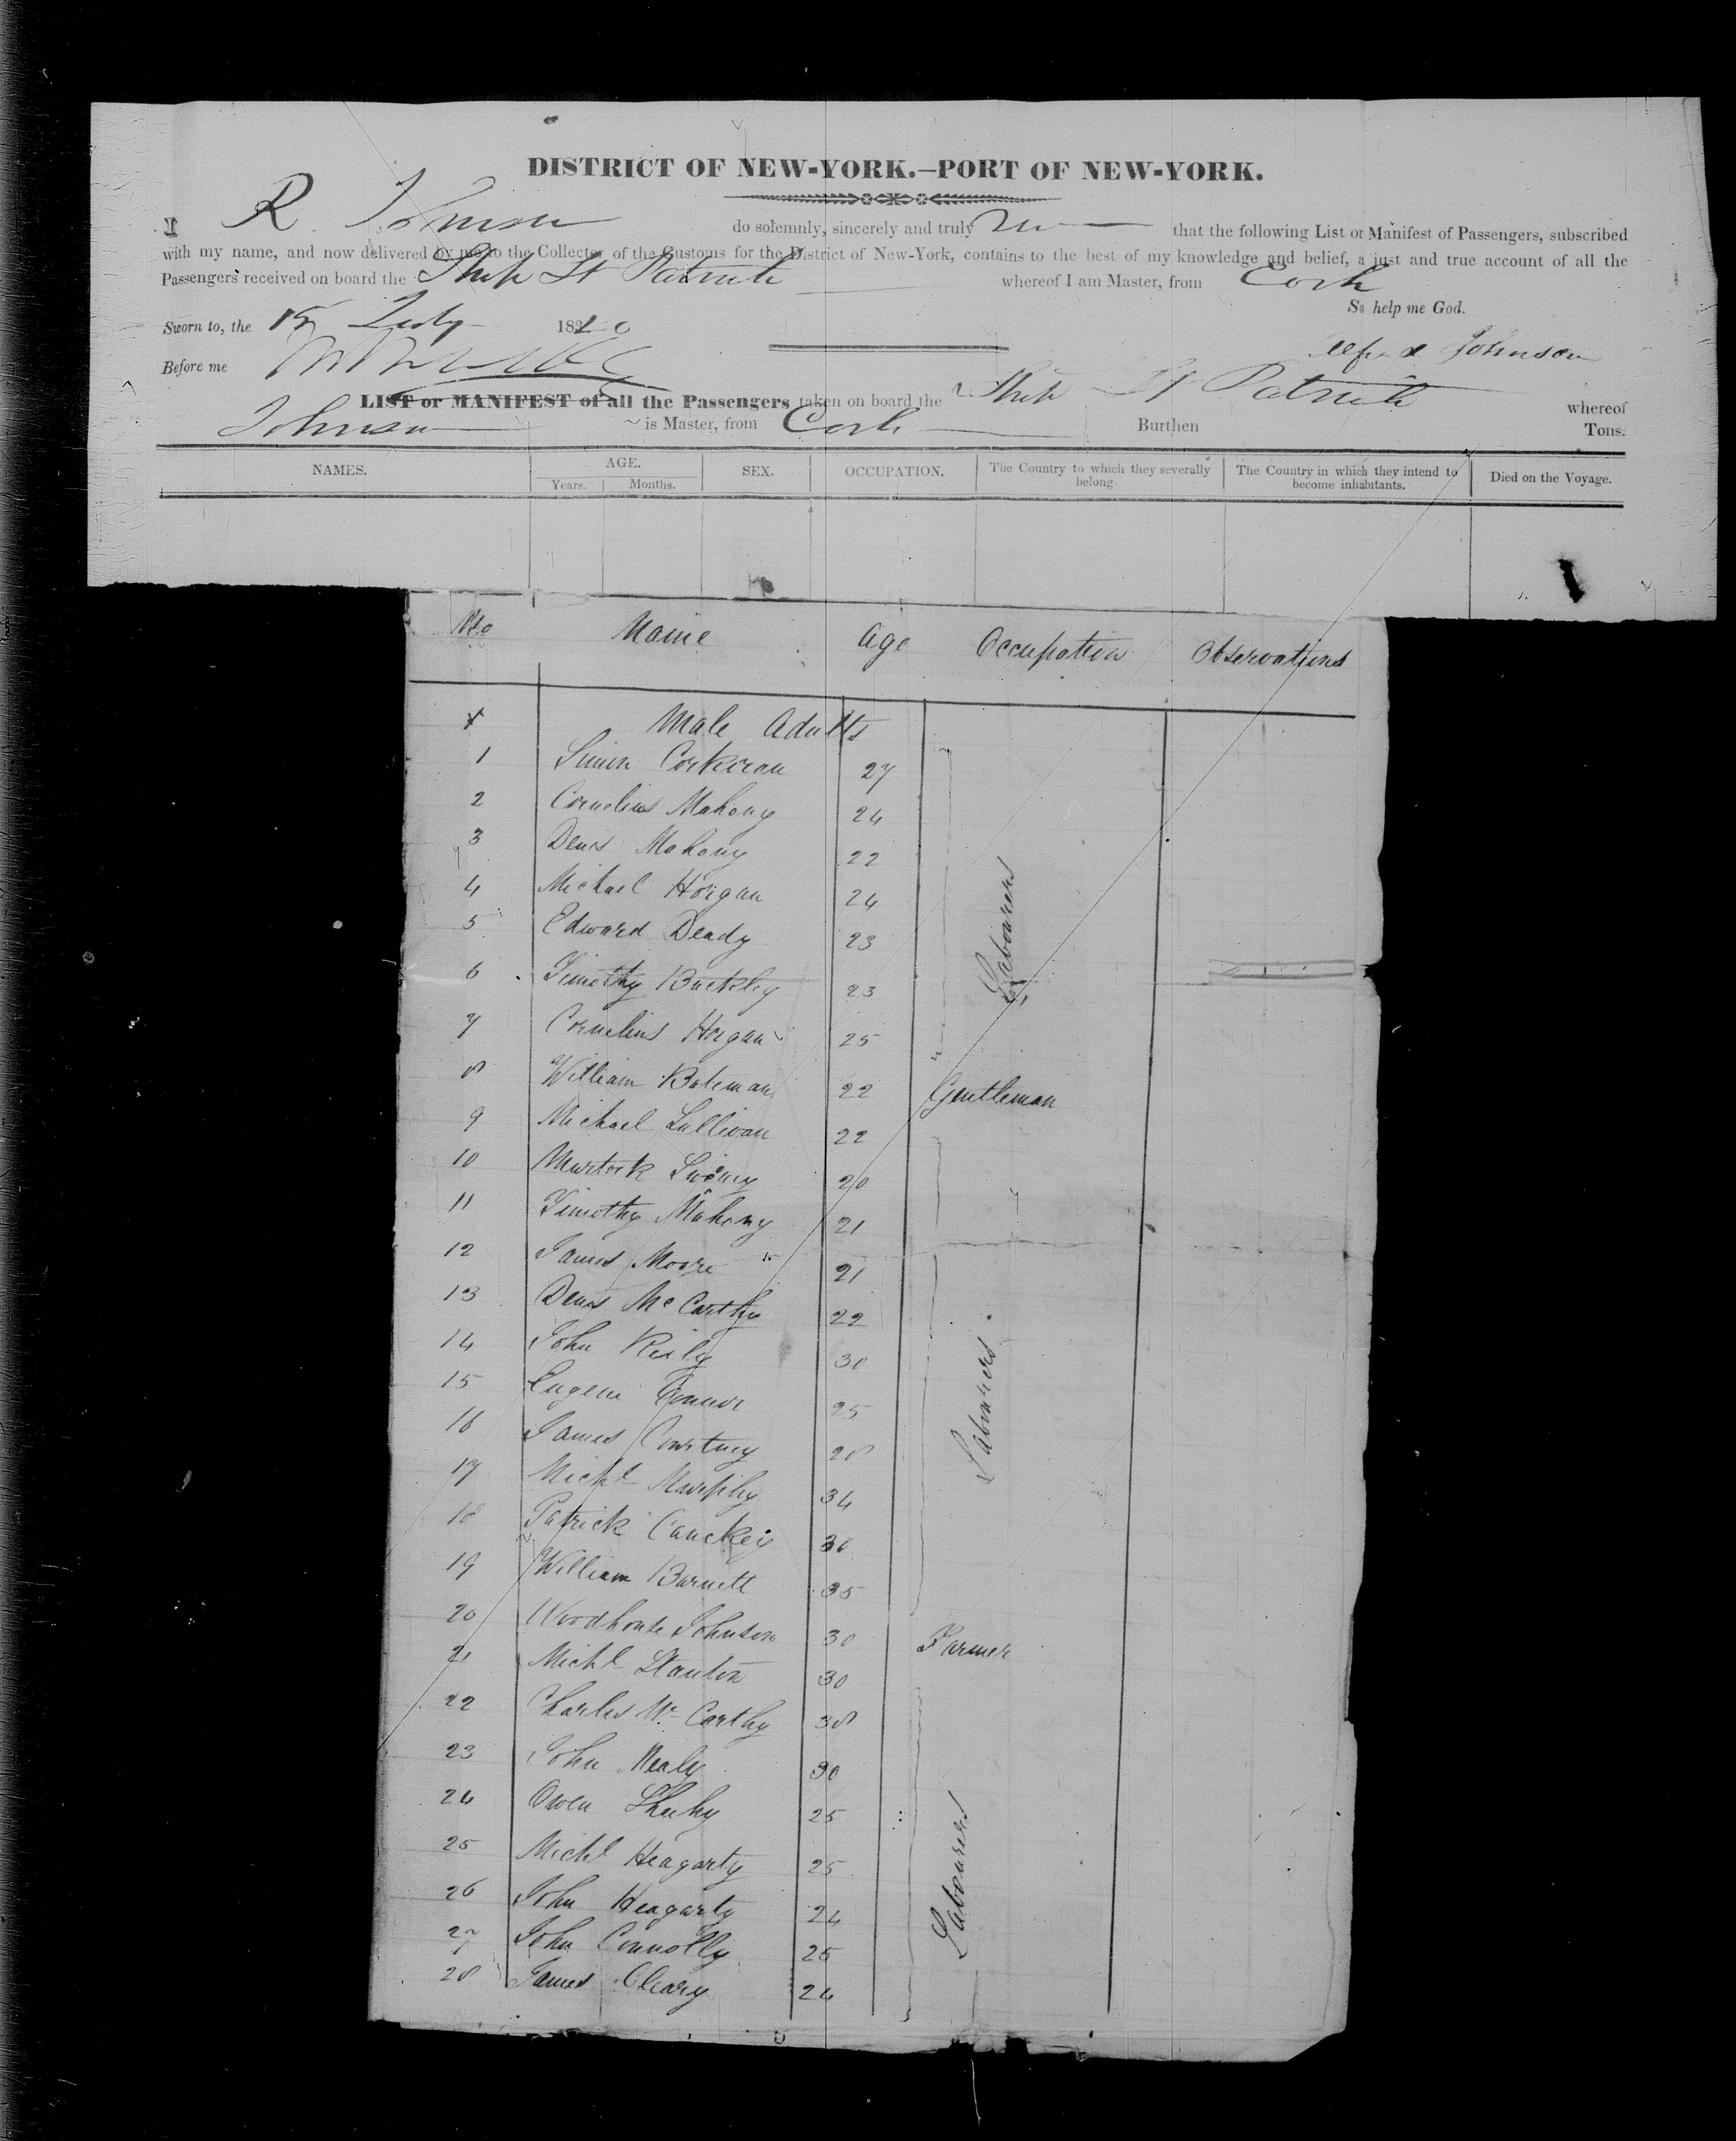 DISTRICT OF NEW-YORK.—PORT OF NEW-YORK.
I R. Johnson do solemnly, sincerely and truly that the following List or Manifest of Passengers, subscribed
with my name, and now delivered by me to the Collector of the Customs for the District of New-York, contains to the best of my knowledge and belief, a just and true account of all the
Passengers received on board the Ship St Patrick whereof I am Master, from Cork
So help me God.
Sworn to, the 15 July 18
Johnson
Before me
LIST or MANIFEST of all the Passengers taken on board the Ship St Patrick whereof
Johnson is Master, from Cork Burthen Tons.
NAMES. AGE. SEX. OCCUPATION. The Country to which they severally belong. The Country in which they intend to become inhabitants. Died on the Voyage.
Years. Months.
No Name Age Occupation Observations
Male Adults
1 Simon Corkiran 27
2 Cornelius Mahony 24
3 Denis Mahony 22
4 Michael Horgan 24
5 Edward Deady 23
Labourers
6 Timothy Buckley 23
7 Cornelius Horgan 25
8 William Bateman 22 Gentleman
9 Michael Sullivan 22
10 Murtock Swiney 20
11 Timothy Mahony 21
12 James Moore 21
13 Denis McCarthy 22
14 John Reily 30
15 Eugene Connor 25
Labourers
16 James Courtney 28
17 Michl Murphy 34
18 Patrick Canckey 30
19 William Barnett 35
20 Woodhouse Johnson 30 Farmer
21 Michl Stanton 30
22 Charles McCarthy 38
23 John Nealy 30
24 Owen Sheehy 25
25 Michl Heagarty 25
Labourers
26 John Heagarty 24
27 John Connolly 25
28 James Cleary 24